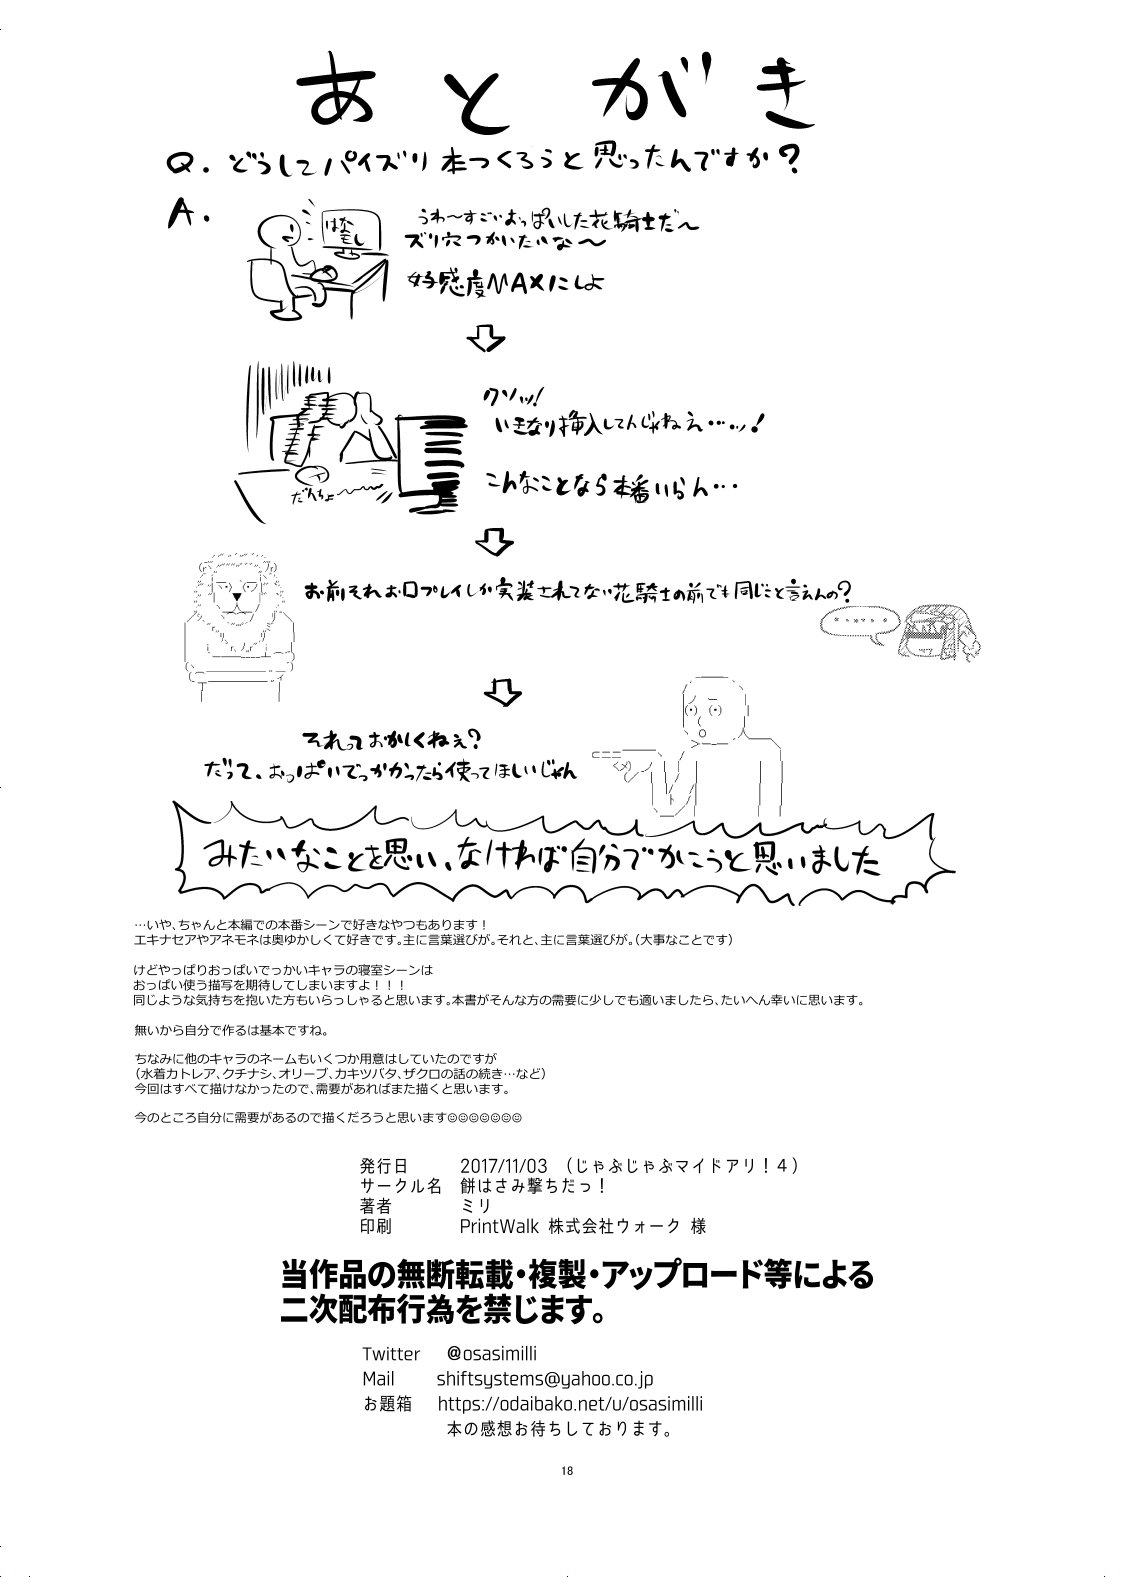 あとがき
Q. どうしてパイズリ本つくろうと思ったんですか？
A.
はなモし
うわ〜すごいおっぱいした花騎士だ〜
ズリ穴つかいたいな〜
好感度MAXにしよ
クソッ！
いきなり挿入してんじゃねえ…ッ！
こんなことなら本番いらん…
だんちょ〜〜
お前それお口プレイしか実装されてない花騎士の前でも同じこと言えんの？
それっておかしくねぇ？
だって、おっぱいでっかかったら使ってほしいじゃん
みたいなことを思い、なければ自分でかこうと思いました
…いや、ちゃんと本編での本番シーンで好きなやつもあります！
エキナセアやアネモネは奥ゆかしくて好きです。主に言葉選びが。それと、主に言葉選びが。（大事なことです）
けどやっぱりおっぱいでっかいキャラの寝室シーンは
おっぱい使う描写を期待してしまいますよ！！！
同じような気持ちを抱いた方もいらっしゃると思います。本書がそんな方の需要に少しでも適いましたら、たいへん幸いに思います。
無いから自分で作るは基本ですね。
ちなみに他のキャラのネームもいくつか用意はしていたのですが
（水着カトレア、クチナシ、オリーブ、カキツバタ、ザクロの話の続き…など）
今回はすべて描けなかったので、需要があればまた描くと思います。
今のところ自分に需要があるので描くだろうと思います☺☺☺☺☺☺☺
発行日 2017/11/03 （じゃぶじゃぶマイドアリ！４）
サークル名 餅はさみ撃ちだっ！
著者 ミリ
印刷 PrintWalk 株式会社ウォーク 様
当作品の無断転載・複製・アップロード等による
二次配布行為を禁じます。
Twitter @osasimilli
Mail shiftsystems@yahoo.co.jp
お題箱 https://odaibako.net/u/osasimilli
本の感想お待ちしております。
18